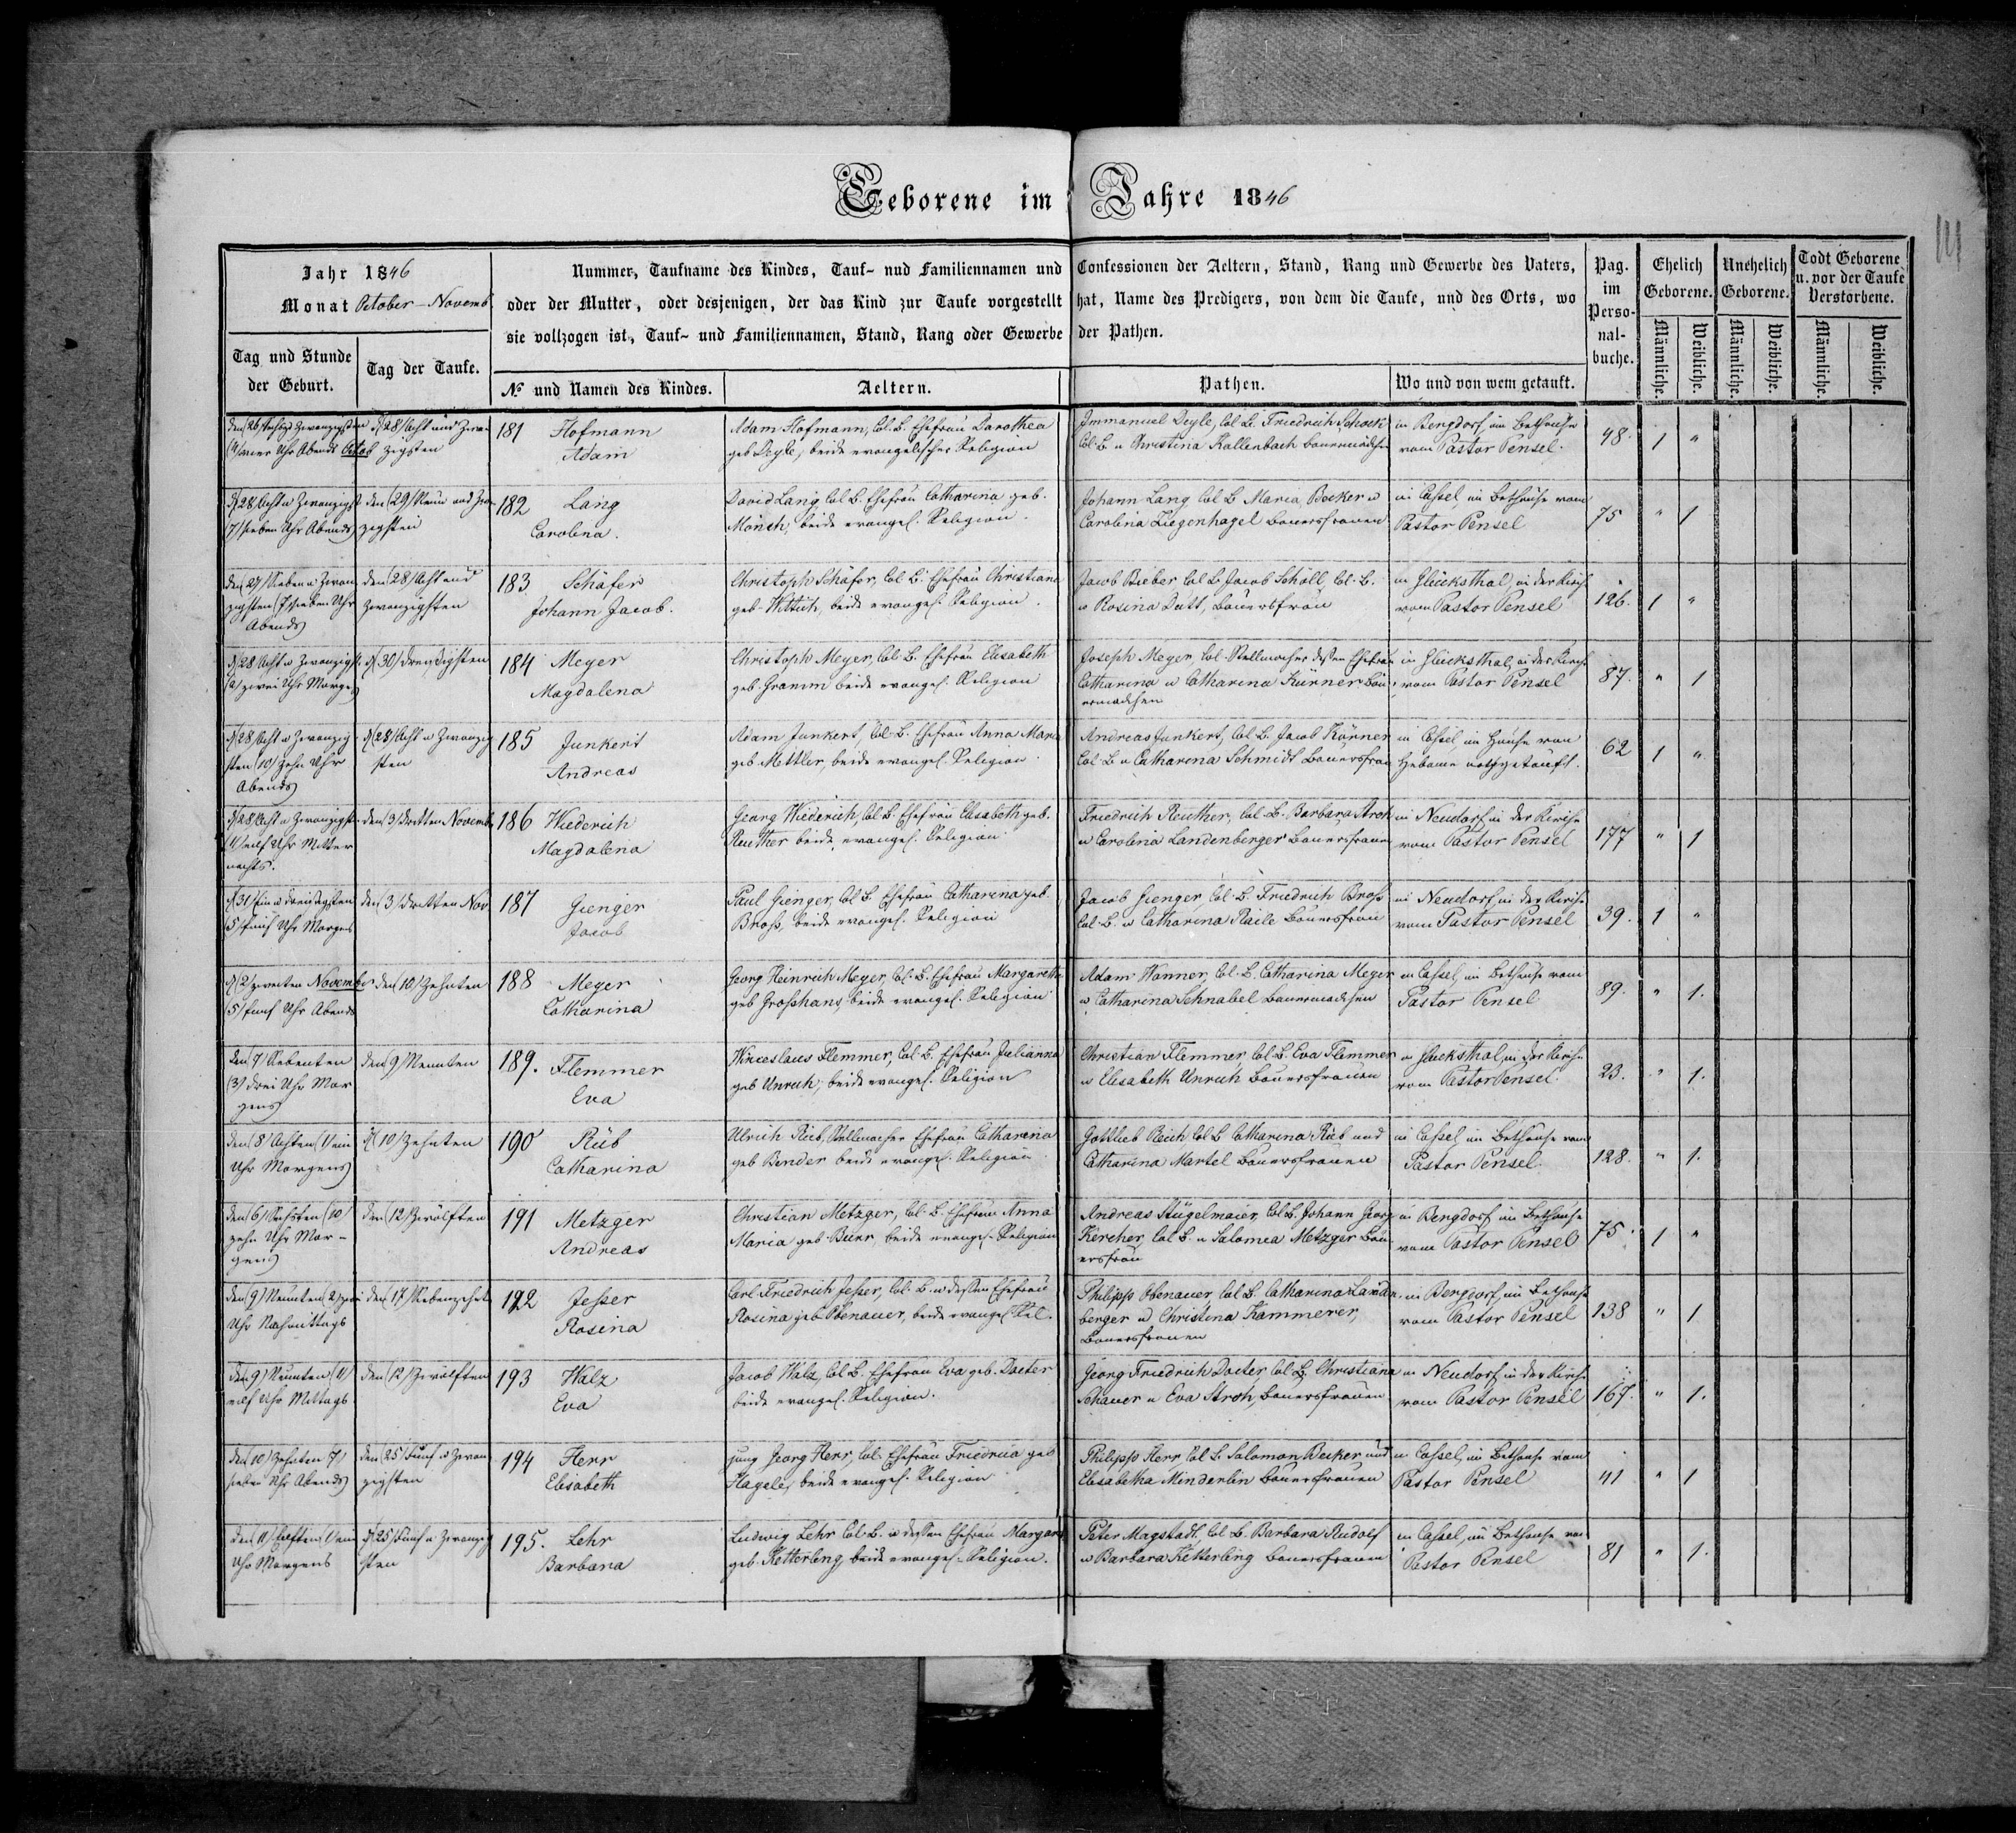 Geborene im Jahre 1846
Jahr 1846
Monat October - Novemb
Tag und Stunde
der Geburt.
Tag der Taufe.
Nummer, Taufname des Kindes, Tauf- nud Familiennamen und
oder der Mutter, oder desjenigen, der das Kind zur Taufe vorgestellt
sie vollzogen ist, Tauf- und Familiennamen, Stand, Rang oder Gewerbe
No und Namen des Kindes.
Aeltern.
Confessionen der Aeltern, Stand, Rang und Gewerbe des Vaters,
hat, Name des Predigers, von dem die Taufe, und des Orts, wo
der Pathen.
Pathen.
Wo und von wem getauft.
Pag.
im
Perso-
nal-
buche.
Ehelich
Geborene.
Unehelich
Geborene.
Todt Geborene
u. vor der Taufe
Verstorbene.
Männliche.
Weibliche.
Männliche.
Weibliche.
Männliche.
Weibliche.
181 Hofmann
Adam
Adam Hofmann, Col. B. Ehefrau Dorothea
geb Deyle, beide evangelischer Religion
Immanuel Deyle, Col. B. Friedrich Schock
Col. B. u Christina Kallenbach Bauermädchen
in Bergdorf im Bethause
vom Pastor Pensel.
48. 1 "
den (29) Neun und Zwan
zigsten
(7) sieben Uhr Abends
182 Lang
Carolina.
David Lang Col. B. Ehefrau Catharina geb.
Mönch, beide evangel. Religion.
Johann Lang Col B Maria Becker u
Carolina Ziegenhagel Bauersfrauen
in Cassel, im Bethause vom
Pastor Pensel
75 " 1
den (27) Sieben u Zwan
zigsten (7) sieben Uhr
Abends
den (28) Acht und
zwanzigsten
183 Schäfer
Johann Jacob.
Christoph Schäfer, Col. B. Ehefrau Christiana
geb. Wittich, beide evangel. Religion.
Jacob Bieber Col B Jacob Schöll, Col. B.
u Rosina Dutt, Bauersfrau
in Glücksthal, in der Kirche
vom Pastor Pensel
126. 1 "
d (28) Acht u Zwanzigst.
(2) zwei Uhr Morgens
d (30) Dreißigsten
184 Meyer
Magdalena
Christoph Meyer, Col. B. Ehefrau Elisabeth
geb. Gramm beide evangel. Religion
Joseph Meyer, Col. Stellmacher dessen Ehefrau
Catharina u Catharina Kürner Bau-
ermädchen
in Glücksthal, in der Kirche
vom Pastor Pensel
87. " 1
d (28) Acht u Zwanzig
sten (10) Zehn Uhr
Abends
d (28) Acht u Zwanzig
sten
185 Junkert
Andreas
Adam Junkert, Col. B. Ehefrau Anna Maria
geb Mettler, beide evangel. Religion.
Andreas Junkert, Col. B. Jacob Körner
Col. B. u Catharina Schmidt Bauersfrau
in Cassel im Hause von
Hebame nothgetauft.
62 1 "
d (28) Acht u Zwanzigst.
(11) eilf Uhr Mitter
nachts.
den (3) Dritten Novembr
186 Wiederich
Magdalena
Georg Wiederich, Col. B. Ehefrau Elisabeth geb.
Reuther beide evangel. Religion
Friedrich Reuther, Col. B. Barbara Stroh
u Carolina Landenberger Bauersfrauen
in Neudorf, in der Kirche
vom Pastor Pensel
177 " 1
d (31) Ein u Dreißigsten
(5) fünf Uhr Morgens
den (3) Dritten Nov.
187 Gienger
Jacob
Paul Gienger, Col B. Ehefrau Catharina geb.
Broß, beide evangel. Religion
Jacob Gienger Col. B. Friedrich Broß
Col. B. u Catharina Raile Bauersfrau
in Neudorf, in der Kirche
vom Pastor Pensel
39. 1 "
d (2) zweiten November
(5) fünf Uhr Abends
den (10) Zehnten
188 Meyer
Catharina
Georg Heinrich Meyer, Col. B. Ehefrau Margaretha
geb Großhans, beide evangel. Religion
Adam Wanner, Col. B. Catharina Meyer
u Catharina Schnabel Bauermädchen
in Cassel, im Bethause vom
Pastor Pensel
89. " 1.
den (7) Siebenten
(3) drei Uhr Mor
gens
den (9) Neunten
189. Flemmer
Eva
Winceslaus Flemmer, Col. B. Ehefrau Julianna
geb Unruh, beide evangel. Religion
Christian Flemmer Col. B. Eva Flemmer
u Elisabeth Unruh Bauersfrauen
in Glücksthal, in der Kirche
vom Pastor Pensel.
23. " 1.
den (8) Achten (1) ein
Uhr Morgens
d (10) Zehnten
190 Rüb
Catharina
Ulrich Rüb, Stellmacher Ehefrau Catharina
geb Bender beide evangel. Religion
Gottlieb Reich Col B Catharina Rüb und
Catharina Martel Bauersfrauen
in Cassel im Bethause vom
Pastor Pensel.
128. " 1.
den (6) Sechsten (10)
zehn Uhr Mor-
gens
den (12) Zwölften
191 Metzger
Andreas
Christian Metzger, Col. B. Ehefrau Anna
Maria geb. Beier, beide evangel. Religion
Andreas Stügelmaier, Col. B. Johann Georg
Kercher, Col. B. u Salomea Metzger Bau-
ersfrau
in Bergdorf im Bethause
vom Pastor Pensel
75. 1 "
den (9) Neunten (2) zwei
Uhr Nachmittags
den (17) Siebenzehnten
192 Jesser
Rosina
Carl Friedrich Jesser, Col. B. u dessen Ehefrau
Rosina geb Obenauer, beide evangel. Rel.
Philipp Obenauer Col. B. Catharina Landen-
berger u Christina Kammerer,
Bauersfrauen
in Bergdorf, im Bethause
vom Pastor Pensel
138 " 1
den (9) Neunten (11)
eilf Uhr Mittags
den (12) Zwölften
193 Walz
Eva
Jacob Walz, Col B. Ehefrau Eva geb. Doeter
beide evangel. Religion.
Georg Friedrich Doeter, Col B, Christiana
Schauer u Eva Stroh, Bauersfrauen
in Neudorf, in der Kirche
vom Pastor Pensel
167. " 1.
den (10) Zehnten 7)
sieben Uhr Abends
den (25) Fünf u Zwan
zigsten
194 Herr
Elisabeth
jung Georg Herr, Col. Ehefrau Friedrica geb
Hagele, beide evangel. Religion
Philipp Herr Col B. Salomon Becker und
Elisabetha Minderlin Bauersfrauen
in Cassel, im Bethause vom
Pastor Pensel
41 " 1
den (11) Eilften (1) ein
Uhr Morgens
d (25) Fünf u Zwanzig
sten
195. Lehr
Barbara
Ludwig Lehr Col. B. u dessen Ehefrau Margar.
geb. Ketterling, beide evangel. Religion.
Peter Magstadt, Col. B. Barbara Rudolf
u Barbara Ketterling Bauersfrauen
in Cassel, im Bethause von
Pastor Pensel
81 " 1.